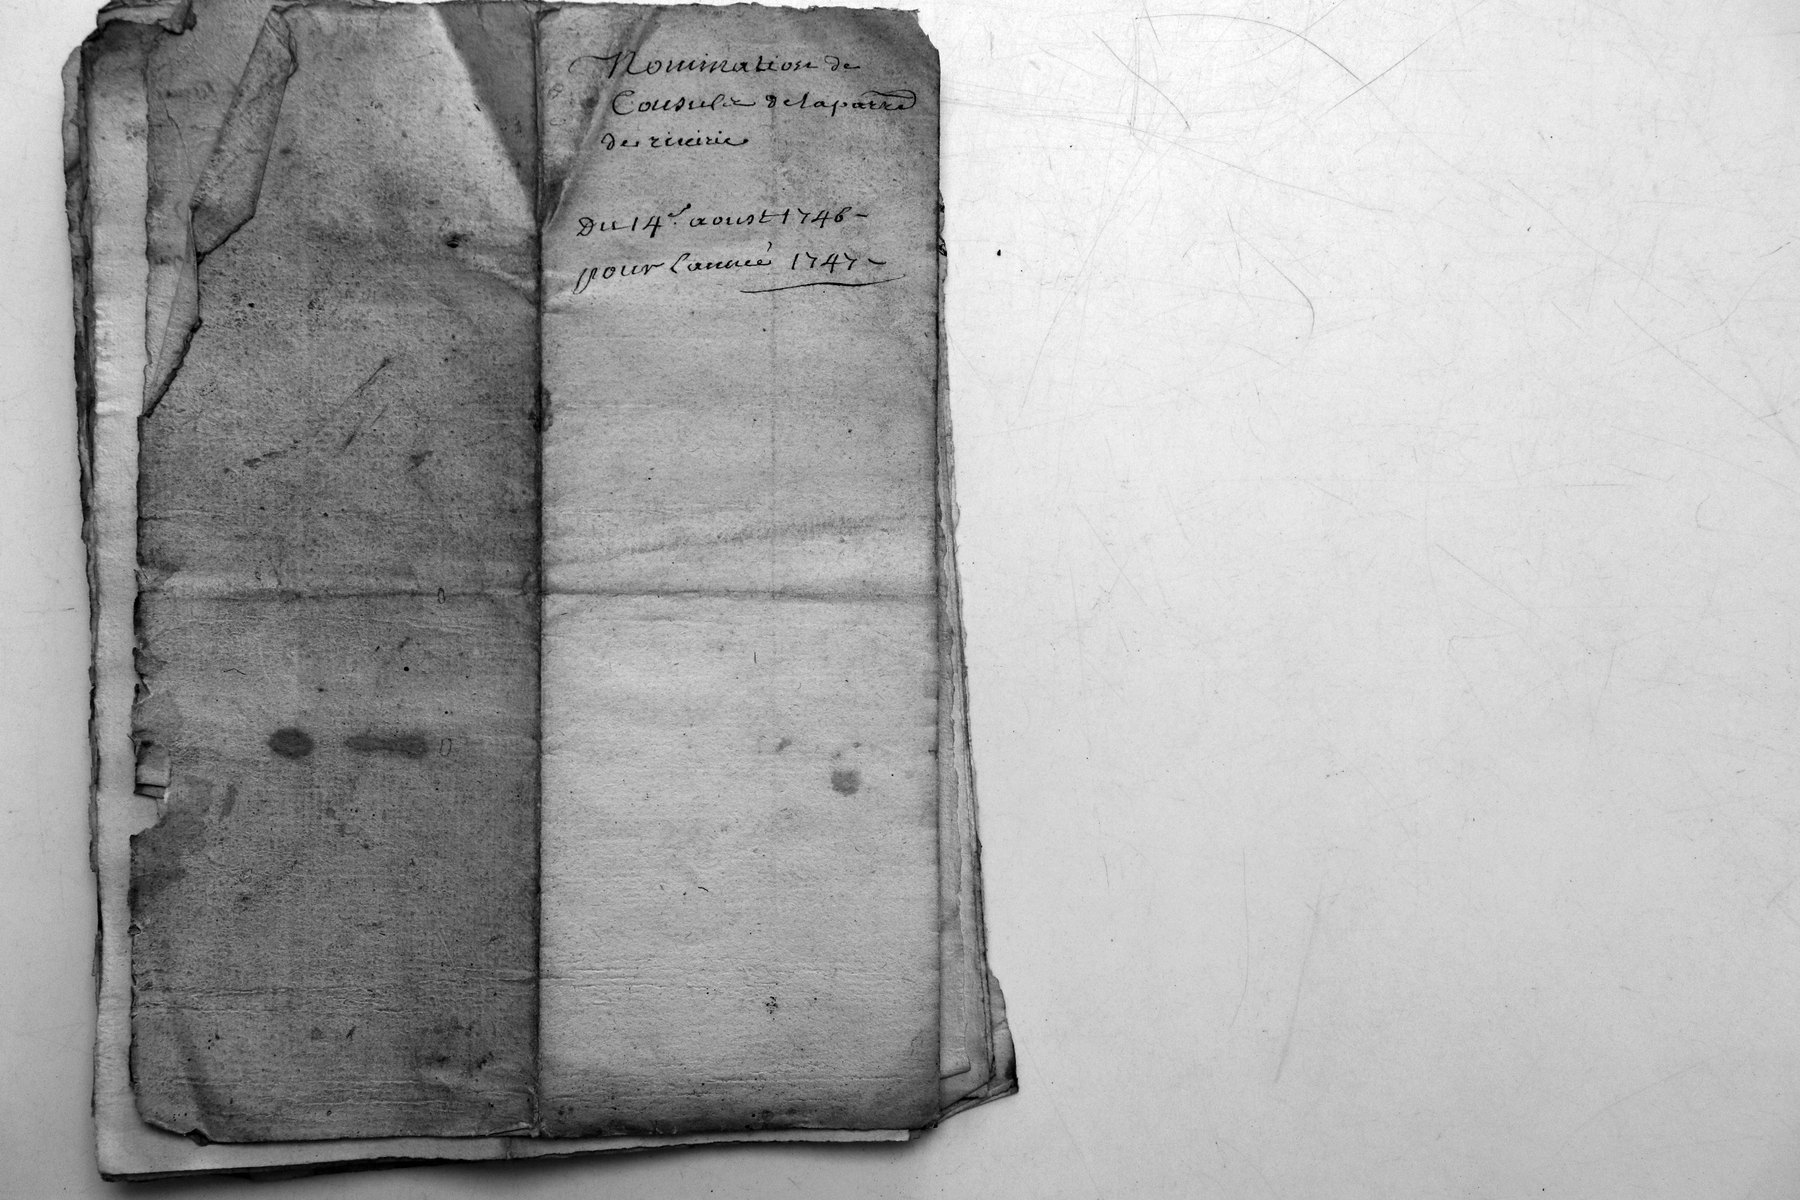 Nomination de
Consulz de laparre
de rivirie
Du 14e. aoust 1746 -
pour l'année 1747 -